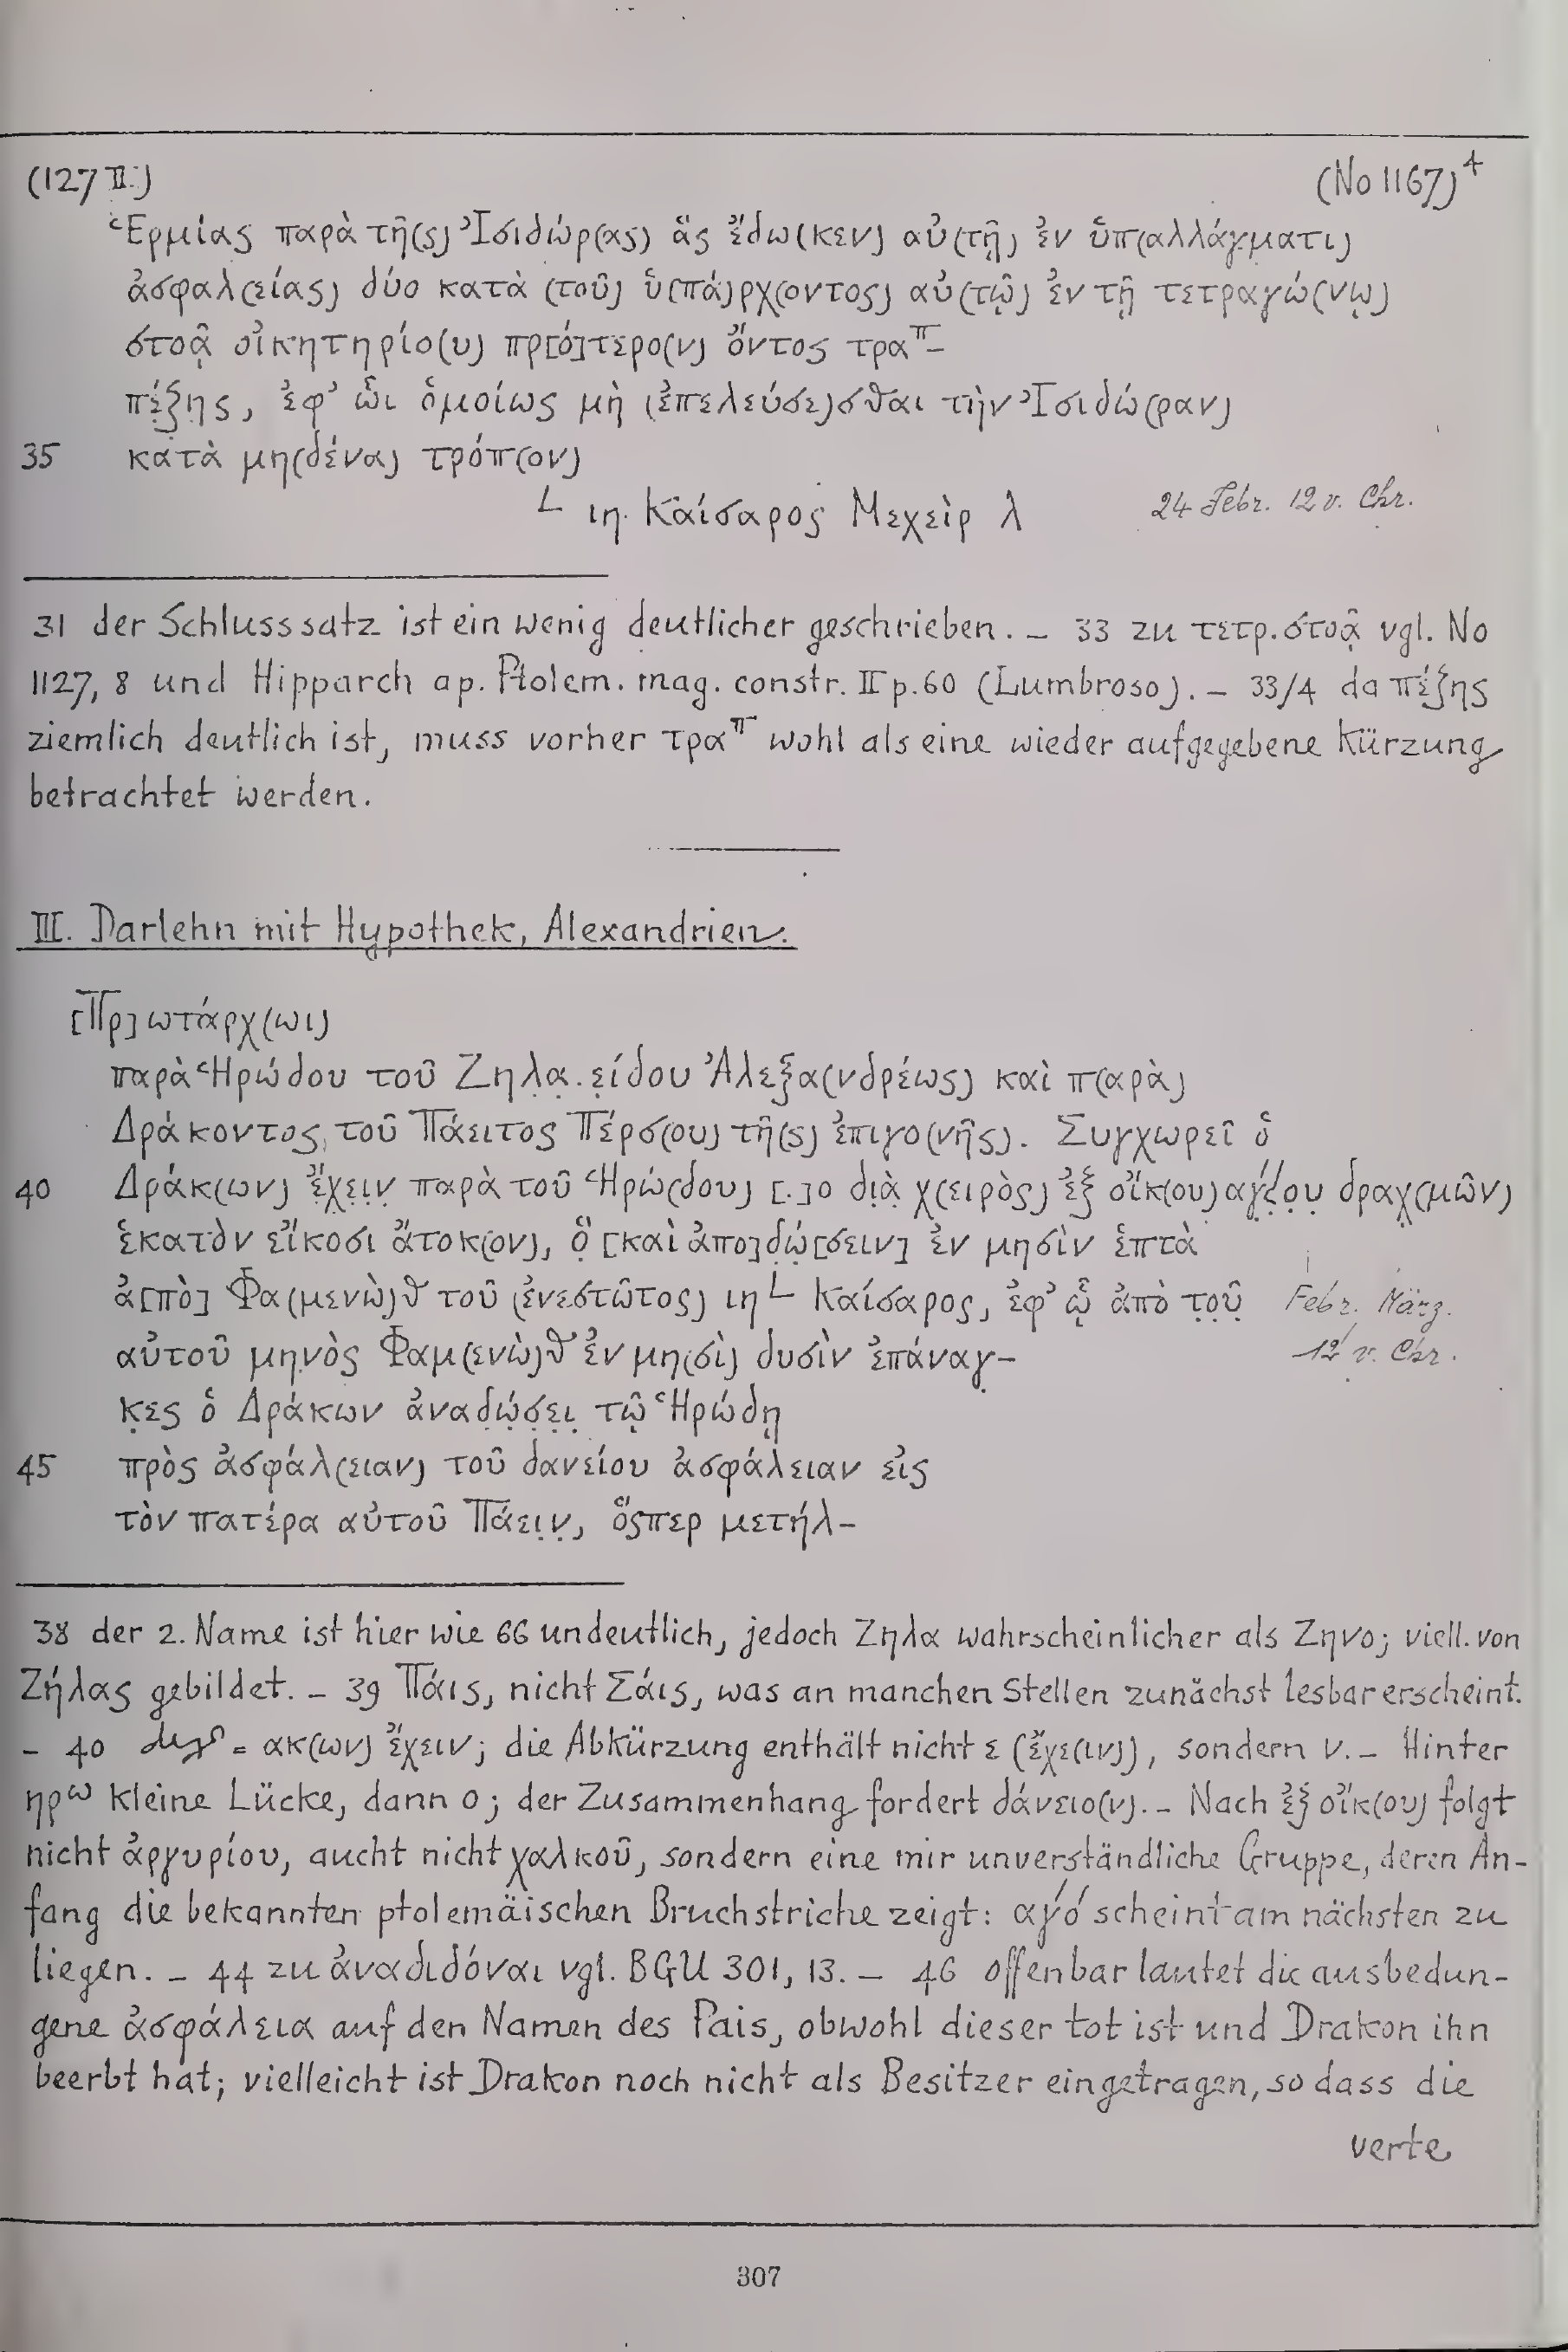 (127 II.)
(No 1167)⁴
Ἑρμίας παρὰ τῆ(ς) Ἰσιδώρ(ας) ἃς ἔδω(κεν) αὐ(τῇ) ἐν ὑπ(αλλάγματι)
ἀσφαλ(είας) δύο κατὰ (τοῦ) ὑ(πά)ρχ(οντος) αὐ(τῷ) ἐν τῇ τετραγώ(νῳ)
στοᾷ οἰκητηρίο(υ) πρ[ό]τερο(ν) ὄντος τραπ-
πέζης, ἐφ' ὧι ὁμοίως μὴ (ἐπελεύσε)σθαι τὴν Ἰσιδώ(ραν)
35 κατὰ μη(δένα) τρόπ(ον)
L ιη Καίσαρος Μεχεὶρ λ 24 Febr. 12 v. Chr.
31 der Schlusssatz ist ein wenig deutlicher geschrieben. – 33 zu τετρ. στοᾷ vgl. No
1127, 8 und Hipparch ap. Ptolem. mag. constr. II p. 60 (Lumbroso). – 33/4 da πέζης
ziemlich deutlich ist, muss vorher τραπ wohl als eine wieder aufgegebene Kürzung
betrachtet werden.
III. Darlehn mit Hypothek, Alexandrien.
[Πρ]ωτάρχ(ωι)
παρὰ Ἡρώδου τοῦ Ζηλα.είδου Ἀλεξα(νδρέως) καὶ π(αρὰ)
Δράκοντος τοῦ Πάειτος Πέρσ(ου) τῆ(ς) ἐπιγο(νῆς). Συγχωρεῖ ὁ
40 Δράκ(ων) ἔχειν παρὰ τοῦ Ἡρώ(δου) [.]ο διὰ χ(ειρὸς) ἐξ οἴκ(ου) αγ́ζ́ου δραχ(μῶν)
ἑκατὸν εἴκοσι ἄτοκ(ον), ὃ [καὶ ἀπο]δώ[σειν] ἐν μησὶν ἑπτὰ
ἀ[πὸ] Φα(μενὼ)θ τοῦ (ἐνεστῶτος) ιη L Καίσαρος, ἐφ' ᾧ ἀπὸ τοῦ Febr. März.
αὐτοῦ μηνὸς Φαμ(ενὼ)θ ἐν μη(σὶ) δυσὶν ἐπάναγ- 12 v. Chr.
κες ὁ Δράκων ἀναδώσει τῷ Ἡρώδῃ
45 πρὸς ἀσφάλ(ειαν) τοῦ δανείου ἀσφάλειαν εἰς
τὸν πατέρα αὐτοῦ Πάειν, ὅσπερ μετήλ-
38 der 2. Name ist hier wie 66 undeutlich, jedoch Ζηλα wahrscheinlicher als Ζηνο; viell. von
Ζήλας gebildet. – 39 Πάις, nicht Σάις, was an manchen Stellen zunächst lesbar erscheint.
– 40 = ακ(ων) ἔχειν; die Abkürzung enthält nicht ε (ἔχε(ιν)), sondern ν. – Hinter
ηρω kleine Lücke, dann ο; der Zusammenhang fordert δάνειο(ν). – Nach ἐξ οἴκ(ου) folgt
nicht ἀργυρίου, aucht nicht χαλκοῦ, sondern eine mir unverständliche Gruppe, deren An-
fang die bekannten ptolemäischen Bruchstriche zeigt: αγ́ό scheint am nächsten zu
liegen. – 44 zu ἀναδιδόναι vgl. BGU 301, 13. – 46 offenbar lautet die ausbedun-
gene ἀσφάλεια auf den Namen des Pais, obwohl dieser tot ist und Drakon ihn
beerbt hat; vielleicht ist Drakon noch nicht als Besitzer eingetragen, so dass die
verte
307